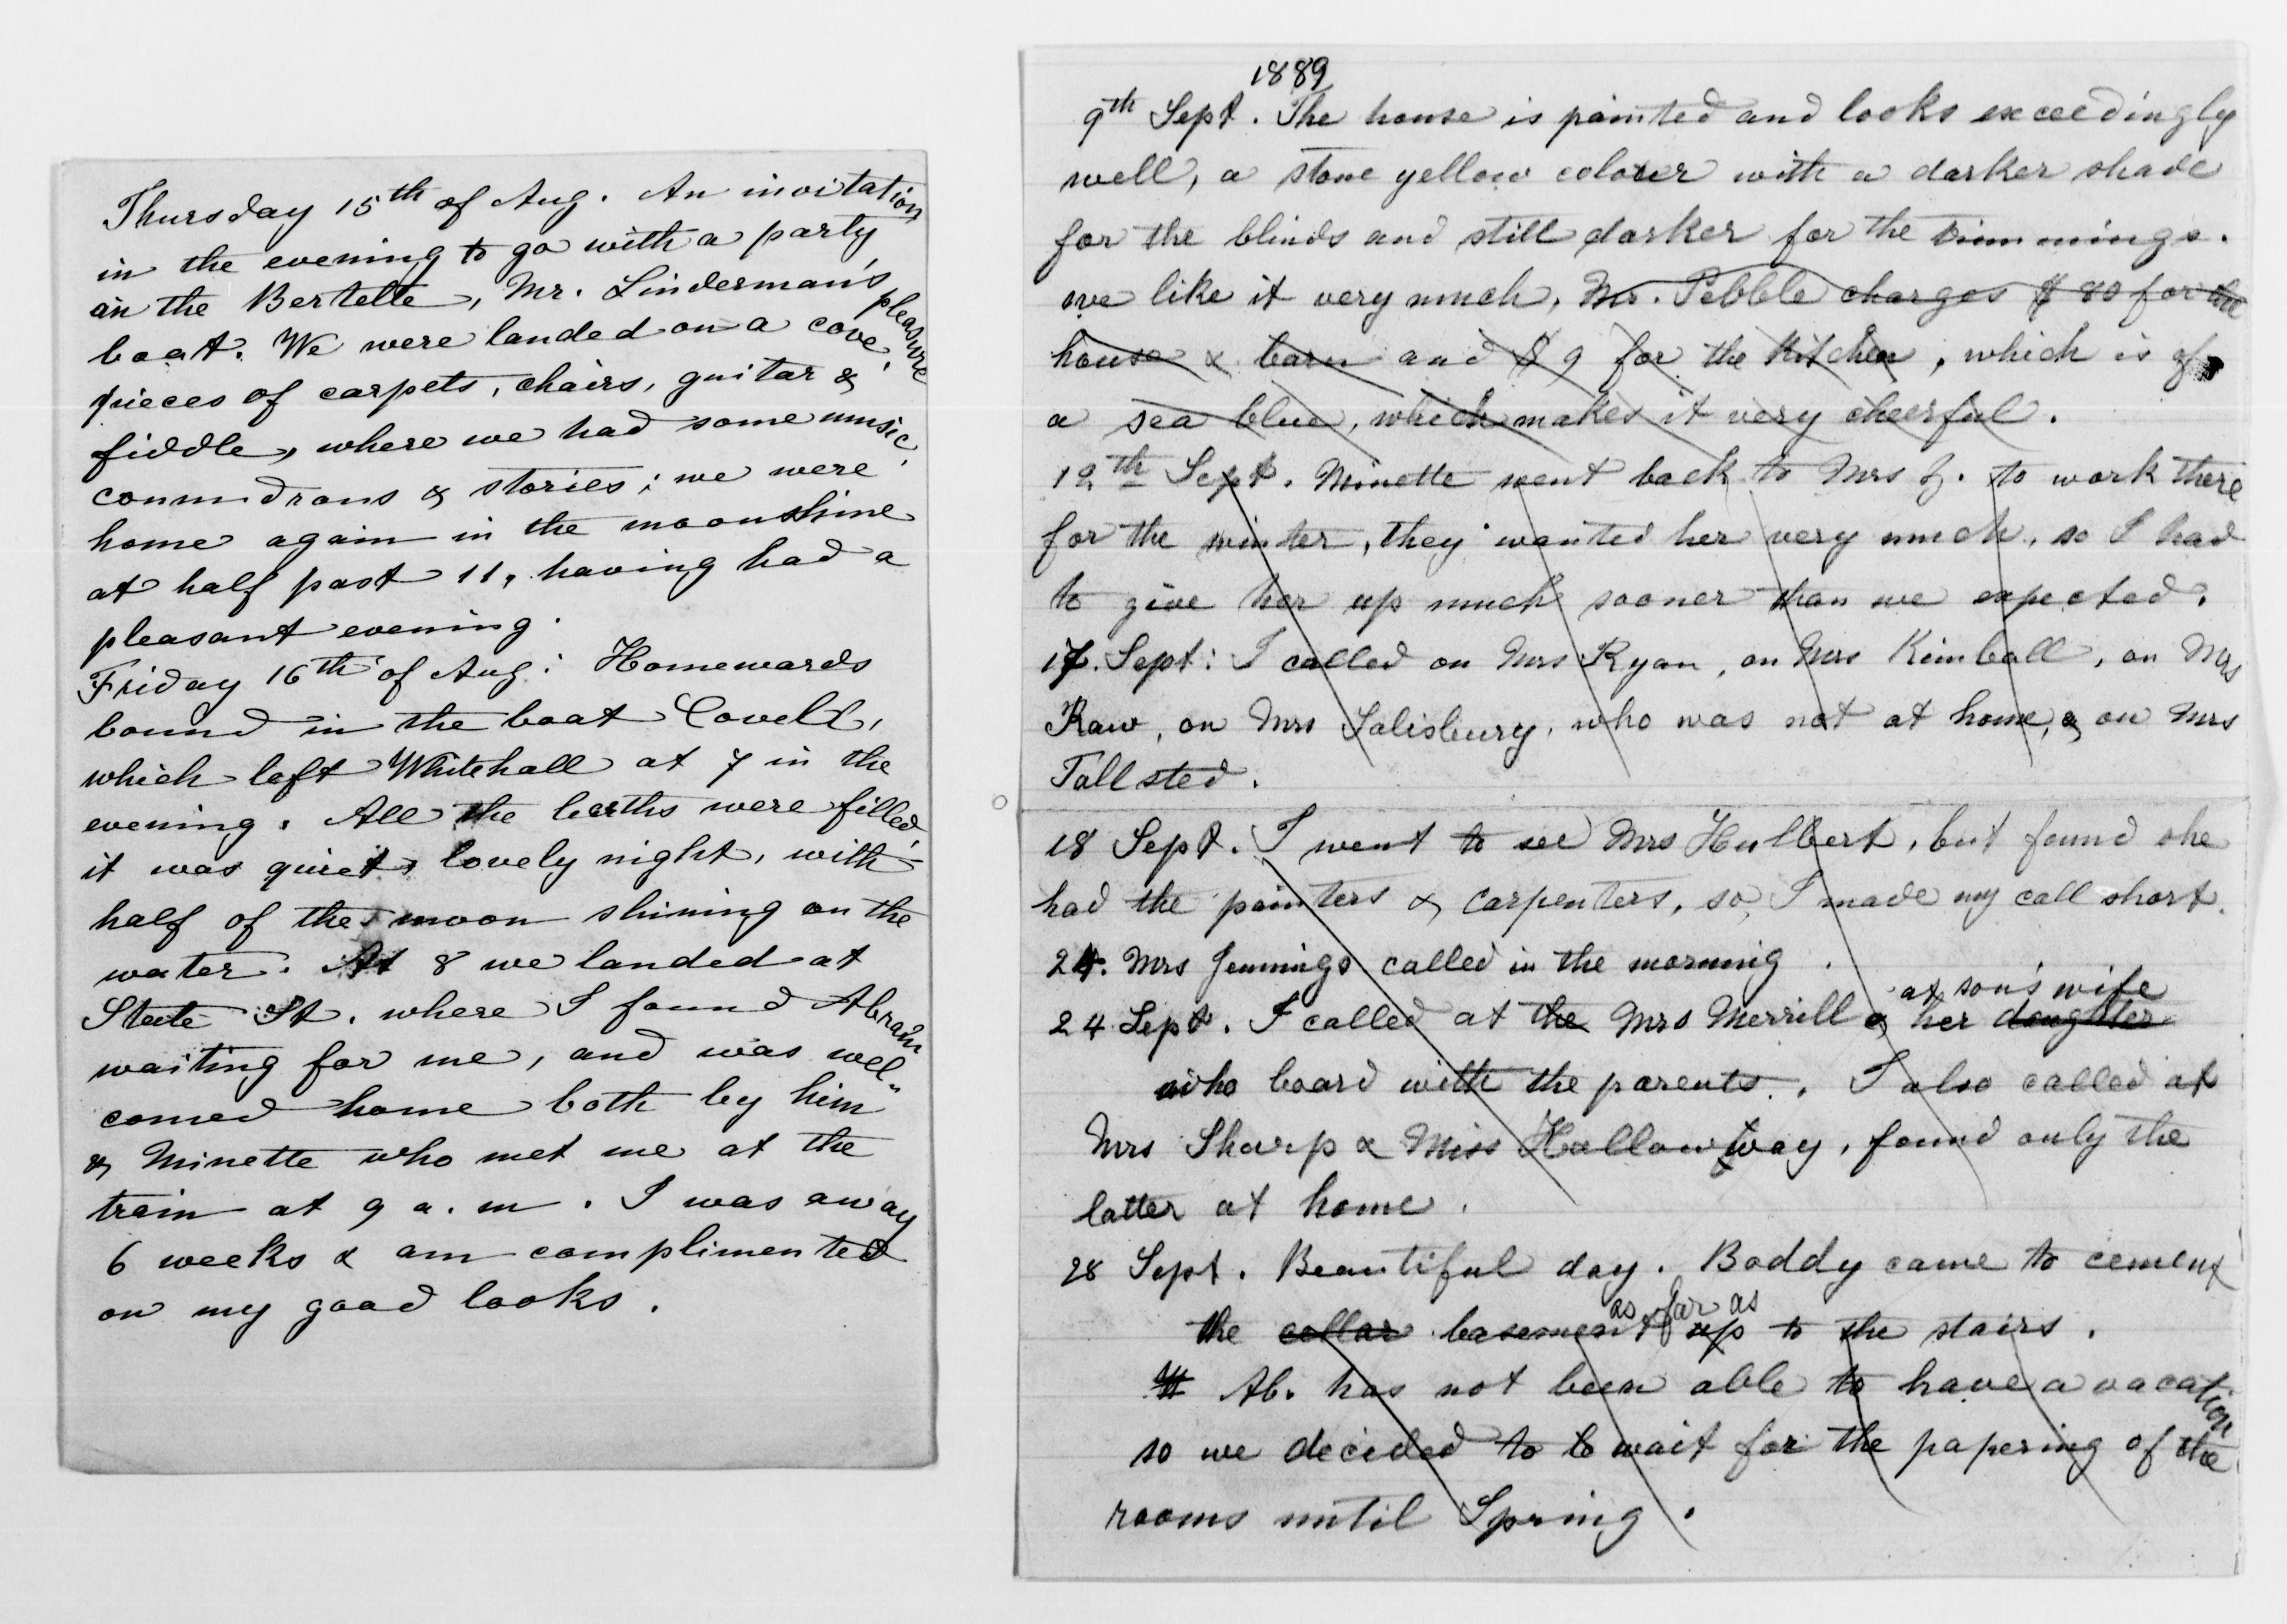 Thursday 15th of Aug. An invitation
in the evening to go with a party
in the Bertelle, Mr. Linderman's pleasure
boat. We were landed on a cove,
pieces of carpets, chairs, guitar &
fiddle, where we had some music,
conundrans & stories; we were
home again in the moonshine
at half past 11, having had a
pleasant evening.
Friday 16th of Aug: Homewards
bound in the boat Covell,
which left Whitehall at 7 in the
evening. All the berths were filled,
it was quiet, lovely night, with
half of the moon shining on the
water. At 8 we landed at
State St. where I found Abram
waiting for me, and was wel-
comed home both by him
& Minette who met me at the
train at 9 a.m. I was away
6 weeks & am complimented
on my good looks.
1889
9th Sept. The house is painted and looks exceedingly
well, a stone yellow colour with a darker shade
for the blinds and still darker for the trimmings.
we like it very much, Mr. Pebble charges $ 80 for the
house & barn and $ 9 for the kitchen, which is of
a sea blue, which makes it very cheerful.
12th Sept. Minette went back to Mrs to work there
for the winter, they wanted her very much, so I had
to give her up much sooner than we expected.
17. Sept: I called on Mrs Ryan, on Mrs Kimball, on Mrs
Raw, on Mrs Salisbury, who was not at home, & on Mrs
Tallsted.
18 Sept. I went to see Mrs Hulbert, but found she
had the painters & carpenters, so I made my call short.
24. Mrs Jennings called in the morning.
at son's wife
24 Sept. I called at the Mrs Merrill & her daughter
who board with the parents. I also called at
Mrs Sharp & Miss Halloway, found only the
latter at home.
28 Sept. Beautiful day. Boddy came to cement
as far as
the cellar basement up to the stairs.
Ab. has not been able to have a vacation
so we decided to to wait for the papering of the
rooms until Spring.